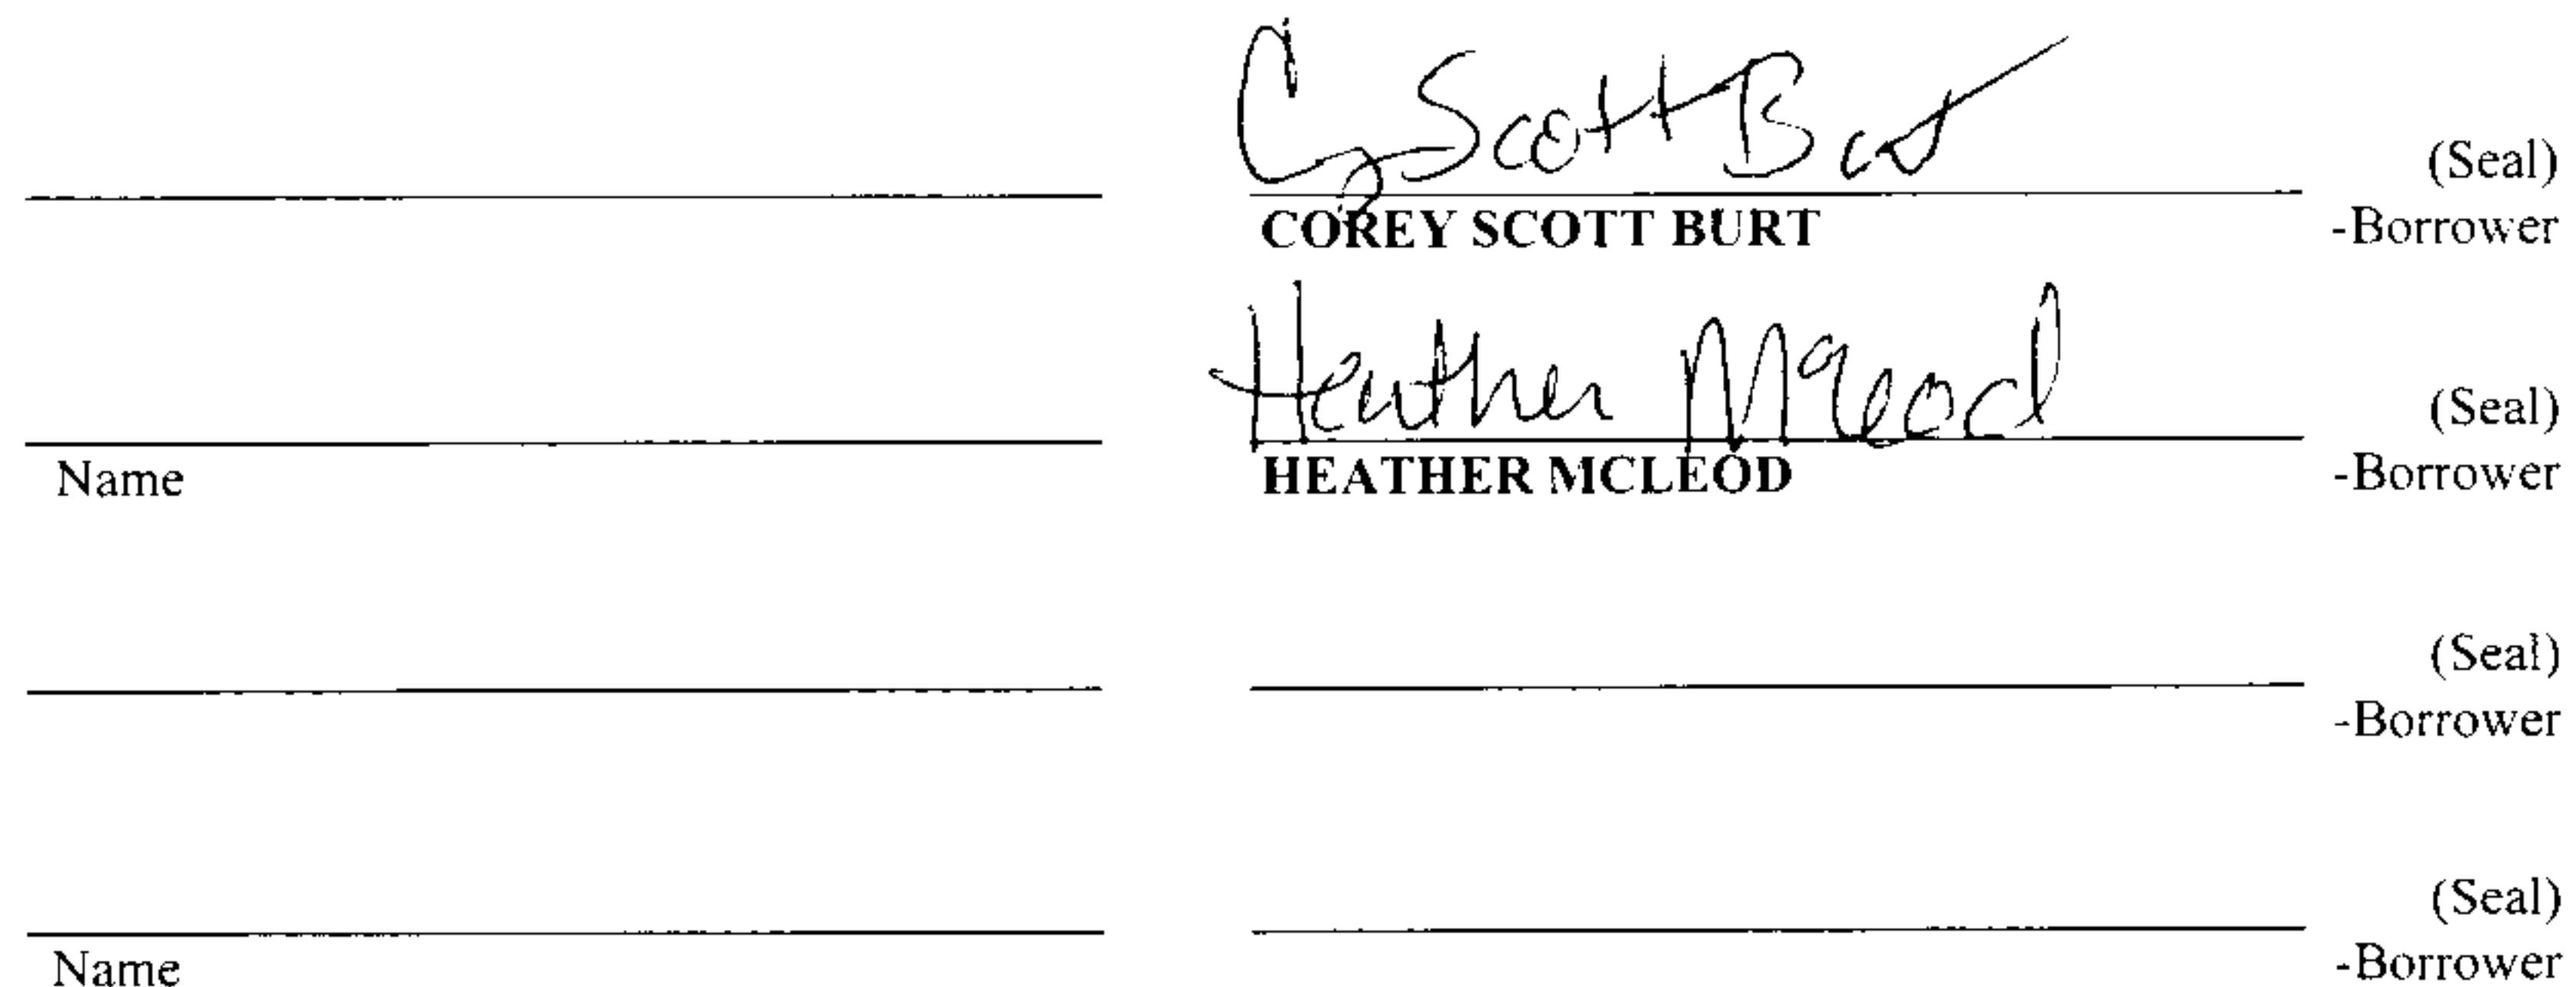 Corey Scott Burt (Seal)
COREY SCOTT BURT -Borrower
Heather McLeod (Seal)
Name HEATHER MCLEOD -Borrower
(Seal)
-Borrower
(Seal)
Name -Borrower